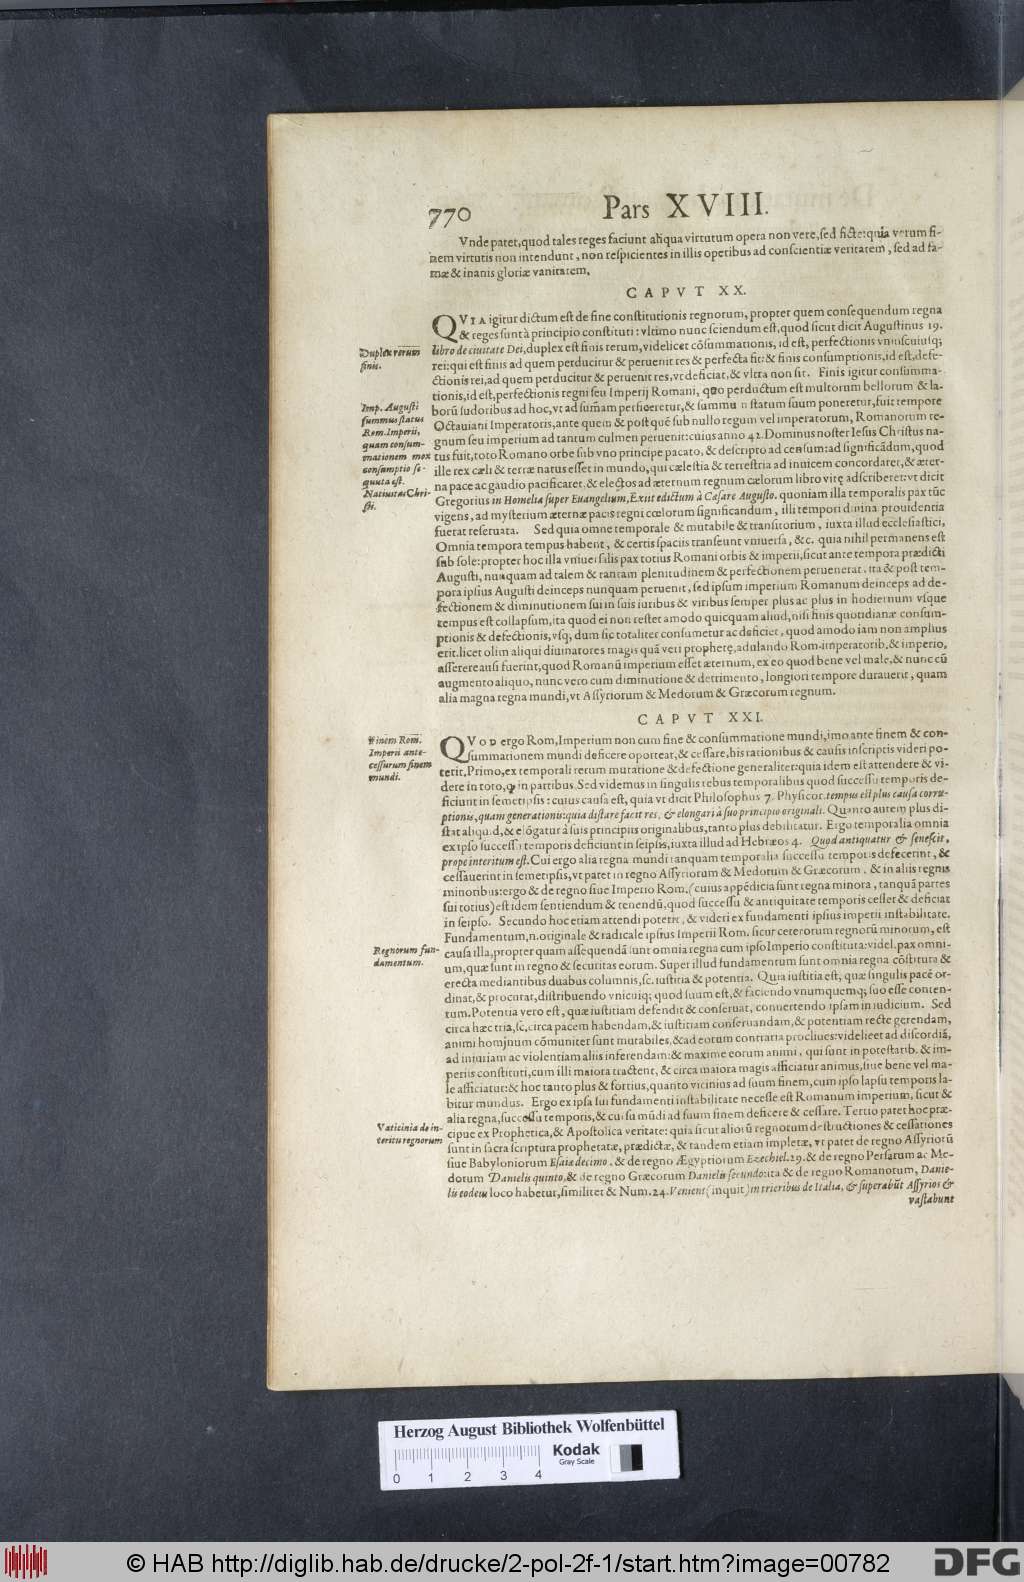 770 Pars XVIII.
Vnde patet, quod tales reges faciunt aliqua virtutum opera non vere, sed ficte: quia verum fi-
nem virtutis non intendunt, non respicientes in illis operibus ad conscientiæ veritatem, sed ad fa-
mæ & inanis gloriæ vanitatem.
CAPVT XX.
QVIA igitur dictum est de fine constitutionis regnorum, propter quem consequendum regna
& reges sunt à principio constituti: vltimo nunc sciendum est, quod sicut dicit Augustinus 19.
libro de ciuitate Dei, duplex est finis rerum, videlicet cōsummationis, id est, perfectionis vniuscuiusq;
rei: qui est finis ad quem perducitur & peruenit res & perfecta fit: & finis consumptionis, id est, defe-
ctionis rei, ad quem perducitur & peruenit res, vt deficiat, & vltra non sit. Finis igitur consumma-
tionis, id est, perfectionis regni seu Imperij Romani, quo perductum est multorum bellorum & la-
borū sudoribus ad hoc, vt ad sum̄am perficeretur, & summum statum suum poneretur, fuit tempore
Octauiani Imperatoris, ante quem & post quē sub nullo regum vel imperatorum, Romanorum re-
gnum seu imperium ad tantum culmen peruenit: cuius anno 42. Dominus noster Iesus Christus na-
tus fuit, toto Romano orbe sub vno principe pacato, & descripto ad censum: ad significādum, quod
ille rex cæli & terræ natus esset in mundo, qui cælestia & terrestria ad inuicem concordaret, & æter-
na pace ac gaudio pacificaret, & electos ad æternum regnum cælorum libro vitę adscriberet: vt dicit
Gregorius in Homelia super Euangelium, Exiit edictum à Cæsare Augusto. quoniam illa temporalis pax tūc
vigens, ad mysterium æternæ pacis regni cœlorum significandum, illi tempori diuina prouidentia
fuerat reseruata. Sed quia omne temporale & mutabile & transitorium, iuxta illud ecclesiastici,
Omnia tempora tempus habent, & certis spaciis transeunt vniuersa, &c. quia nihil permanens est
sub sole: propter hoc illa vniuersalis pax totius Romani orbis & imperii, sicut ante tempora prædicti
Augusti, nunquam ad talem & tantam plenitudinem & perfectionem peruenerat, ita & post tem-
pora ipsius Augusti deinceps nunquam peruenit, sed ipsum imperium Romanum deinceps ad de-
fectionem & diminutionem sui in suis iuribus & viribus semper plus ac plus in hodiernum vsque
tempus est collapsum, ita quod ei non restet amodo quicquam aliud, nisi finis quotidianæ consum-
ptionis & defectionis, vsq; dum sic totaliter consumetur ac deficiet, quod amodo iam non amplius
erit. licet olim aliqui diuinatores magis quā veri prophetę, adulando Rom. imperatorib. & imperio,
asserere ausi fuerint, quod Romanū imperium esset æternum, ex eo quod bene vel male, & nunc cū
augmento aliquo, nunc vero cum diminutione & detrimento, longiori tempore durauerit, quam
alia magna regna mundi, vt Assyriorum & Medorum & Græcorum regnum.
Duplex rerum
finis.
Imp. Augusti
summus status
Rom. Imperii,
quam consum-
mationem mox
consumptio se-
quuta est.
Natiuitas Chri-
sti.
CAPVT XXI.
QVOD ergo Rom, Imperium non cum fine & consummatione mundi, imo ante finem & con-
summationem mundi deficere oporteat, & cessare, his rationibus & causis inscriptis videri po-
terit, Primo, ex temporali rerum mutatione & defectione generaliter: quia idem est attendere & vi-
dere in toto, q̃ in partibus. Sed videmus in singulis rebus temporalibus quod successu temporis de-
ficiunt in semetipsis: cuius causa est, quia vt dicit Philosophus 7. Physicor. tempus est plus causa corru-
ptionis, quam generationis: quia distare facit res, & elongari à suo principio originali. Quanto autem plus di-
stat aliquid, & elōgatur à suis principiis originalibus, tanto plus debilitatur. Ergo temporalia omnia
ex ipso successu temporis deficiunt in seipsis, iuxta illud ad Hebræos 4. Quod antiquatur & senescit,
prope interitum est. Cui ergo alia regna mundi tanquam temporalia successu temporis defecerint, &
cessauerint in semetipsis, vt patet in regno Assyriorum & Medorum & Græcorum, & in aliis regnis
minoribus: ergo & de regno siue Imperio Rom. (cuius appēdicia sunt regna minora, tanquā partes
sui totius) est idem sentiendum & tenendū, quod successu & antiquitate temporis cesset & deficiat
in seipso. Secundo hoc etiam attendi poterit, & videri ex fundamenti ipsius imperii instabilitate.
Fundamentum, n. originale & radicale ipsius Imperii Rom. sicut ceterorum regnorū minorum, est
causa illa, propter quam assequendā sunt omnia regna cum ipso Imperio constituta: videl. pax omni-
um, quæ sunt in regno & securitas eorum. Super illud fundamentum sunt omnia regna cōstituta &
erecta mediantibus duabus columnis, sc. iustitia & potentia. Quia iustitia est, quæ singulis pacē or-
dinat, & procurat, distribuendo vnicuiq; quod suum est, & faciendo vnumquemq; suo esse conten-
tum. Potentia vero est, quæ iustitiam defendit & conseruat, conuertendo ipsam in iudicium. Sed
circa hæc tria, sc, circa pacem habendam, & iustitiam conseruandam, & potentiam recte gerendam,
animi hominum cōmuniter sunt mutabiles, & ad eorum contraria procliues: videlicet ad discordiā,
ad iniuriam ac violentiam aliis inferendam: & maxime eorum animi, qui sunt in potestatib. & im-
periis constituti, cum illi maiora tractent, & circa maiora magis afficiatur animus, siue bene vel ma-
le afficiatur: & hoc tanto plus & fortius, quanto vicinius ad suum finem, cum ipso lapsu temporis la-
bitur mundus. Ergo ex ipsa sui fundamenti instabilitate necesse est Romanum imperium, sicut &
alia regna, successu temporis, & cursu mūdi ad suum finem deficere & cessare. Tertio patet hoc præ-
cipue ex Prophetica, & Apostolica veritate: quia sicut aliorū regnorum destructiones & cessationes
sunt in sacra scriptura prophetatæ, prædictæ, & tandem etiam impletæ, vt patet de regno Assyriorū
siue Babyloniorum Esaiæ decimo, & de regno Ægyptiorum Ezechiel. 29. & de regno Persarum ac Me-
dorum Danielis quinto, & de regno Græcorum Danielis secundo: ita & de regno Romanorum, Danie-
lis eodem loco habetur, similiter & Num. 24. Venient (inquit) in trieribus de Italia, & superabūt Assyrios &
vastabunt
Finem Rom.
Imperii ante-
cessurum finem
mundi.
Regnorum fun-
damentum.
Vaticinia de in-
teritu regnorum
Herzog August Bibliothek Wolfenbüttel
0 1 2 3 4
Kodak
Gray Scale
© HAB http://diglib.hab.de/drucke/2-pol-2f-1/start.htm?image=00782
DFG